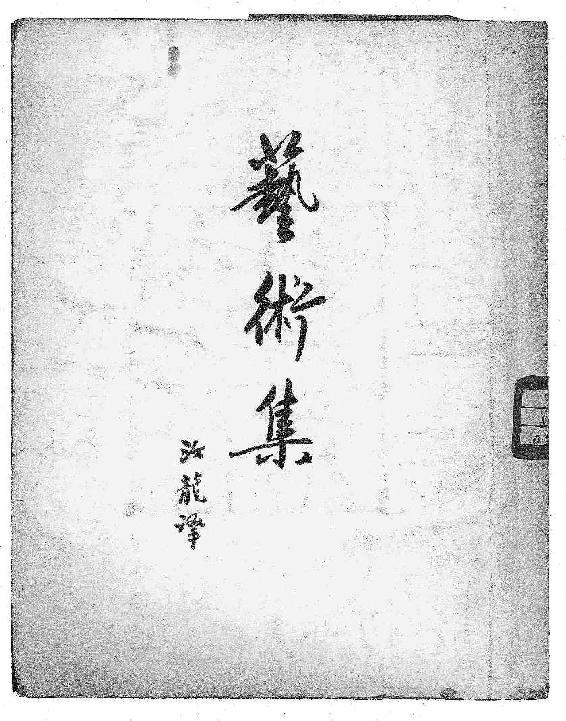 藝術集
汝龍譯